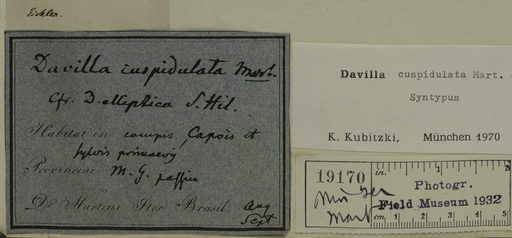 Eichler.
Davilla cuspidulata Mart.
Cfr. D. elliptica S. Hil.
Habitat in campis, Capoës et
sylvis primaevis
Provinciae M. G. passim
Dr. Martius Iter Brasil. Aug
Sept
Davilla cuspidulata Mart.
Syntypus
K. Kubitzki, München 1970
19170
Photogr.
Field Museum 1932
in. 1
cm. 1 2 3 4 5